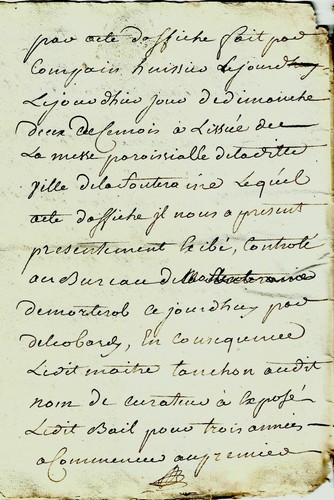 par acte daffiche fait par
Compain huissier Lejourdhuy
Lejourdhuy jour dedimanche
deux de Cemois à Lissüe de
La messe paroissialle delaville
ville delasouteraine Lequel
acte daffiche jl nous a present
presentement Exibé, Controlé
au Bureau de la Souteraine
demorterol cejourdhuy par
delcobardy, En consequence
Ledit maitre tanchon audit
nom de curateur à Exposé
Ledit Bail pour trois années
a Commencer aupremier